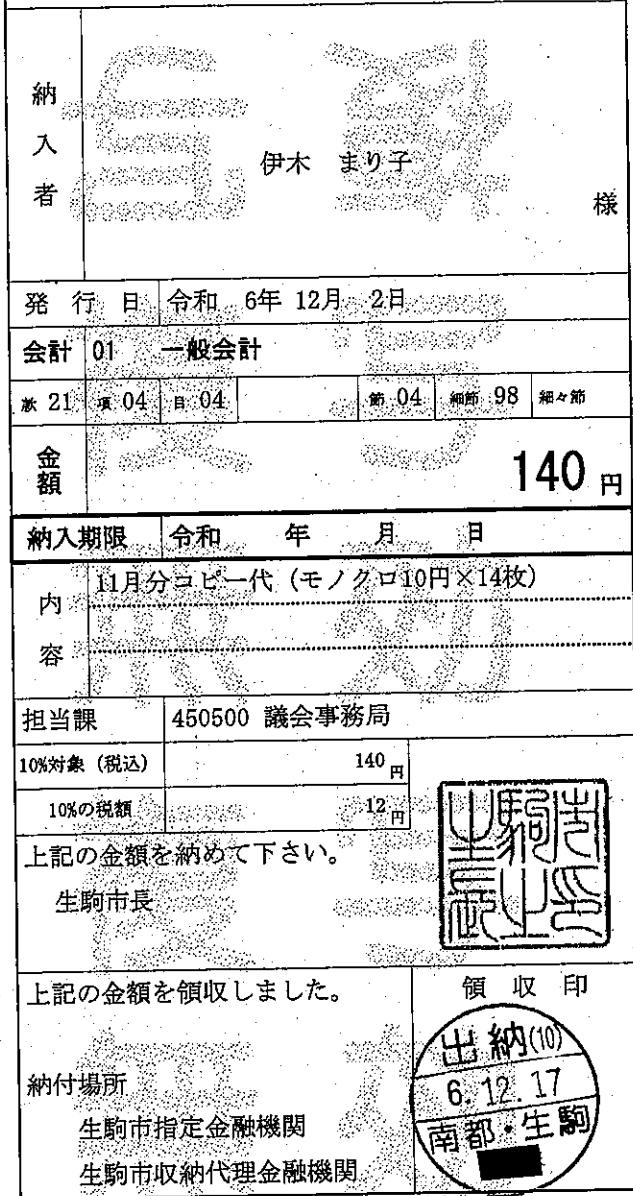 納入者
伊木 まり子
様
発行日 令和 6年 12月 2日
会計 01 一般会計
款 21 項 04 目 04 節 04 細節 98 細々節
金額 140 円
納入期限 令和 年 月 日
内容 11月分コピー代(モノクロ10円×14枚)
担当課 450500 議会事務局
10%対象(税込) 140円
10%の税額 12円
上記の金額を納めて下さい。
生駒市長
上記の金額を領収しました。
領収印
出納(10)
6.12.17
南都・生駒
納付場所
生駒市指定金融機関
生駒市収納代理金融機関